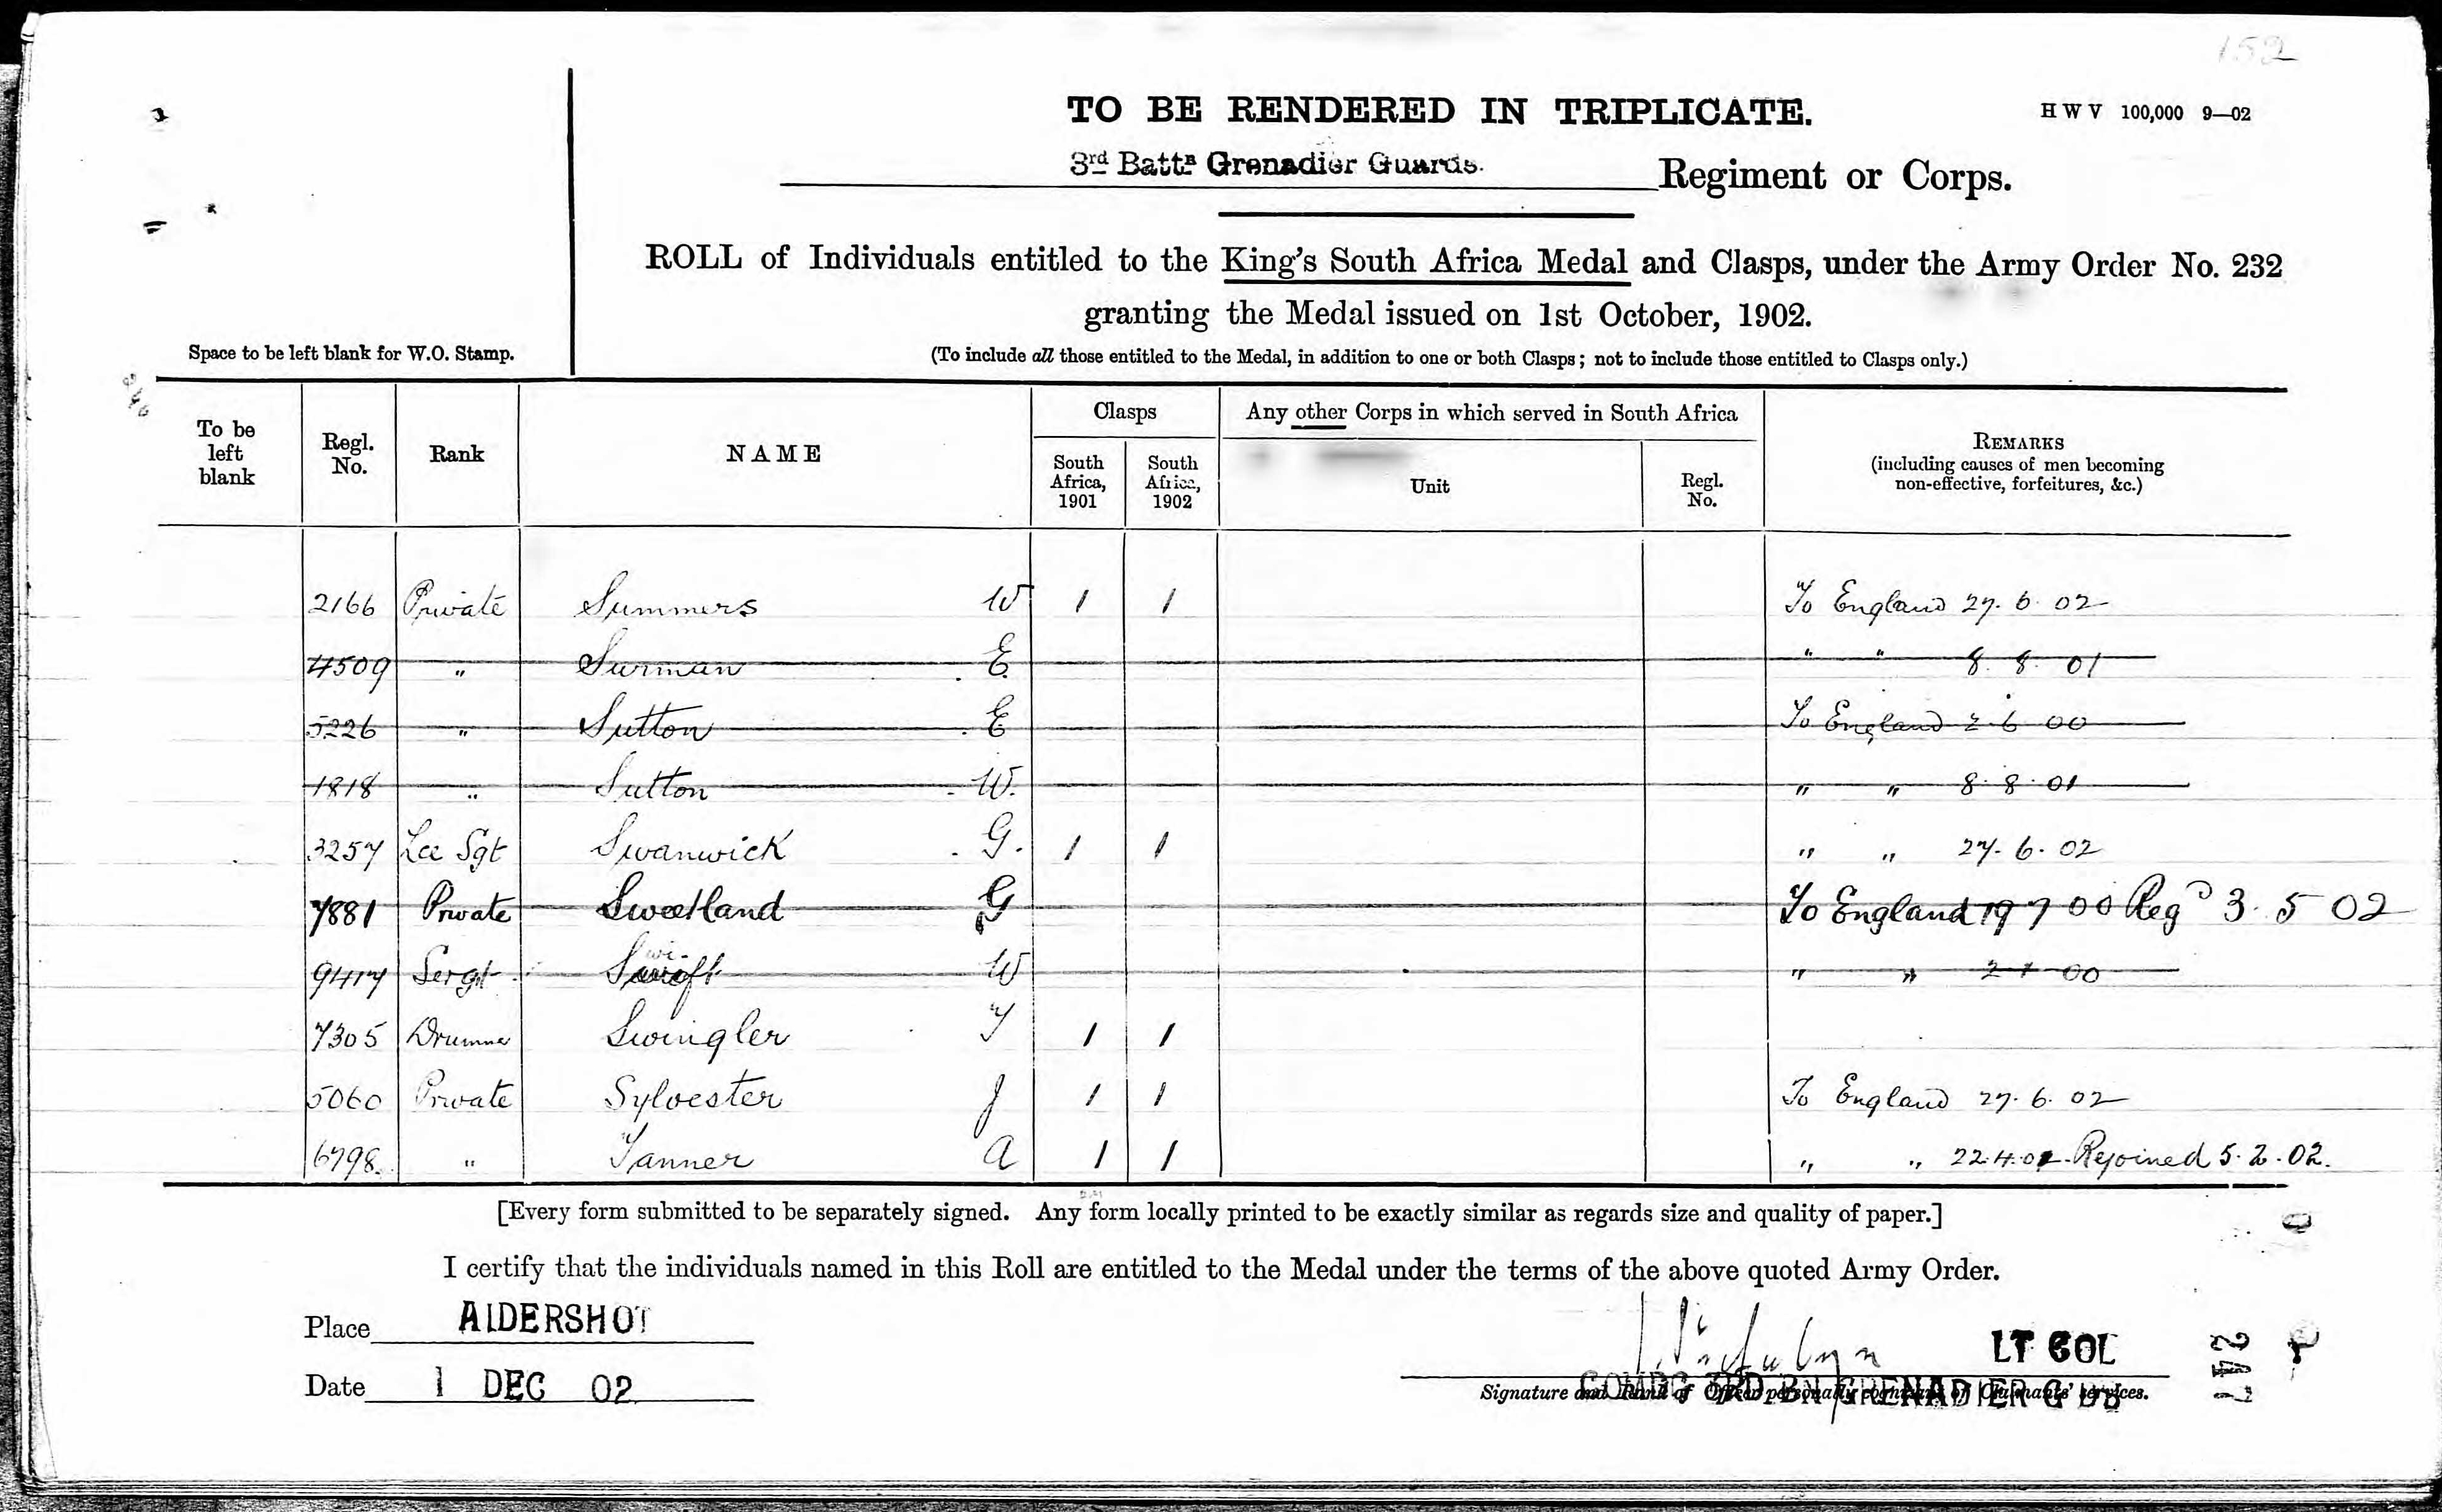 152
TO BE RENDERED IN TRIPLICATE.
H W V 100,000 9—02
3rd Battn Grenadier Guards. Regiment or Corps.
ROLL of Individuals entitled to the King's South Africa Medal and Clasps, under the Army Order No. 232
granting the Medal issued on 1st October, 1902.
Space to be left blank for W.O. Stamp.
(To include all those entitled to the Medal, in addition to one or both Clasps; not to include those entitled to Clasps only.)
To be left blank
Regl. No.
Rank
NAME
Clasps
South Africa, 1901
South Africa, 1902
Any other Corps in which served in South Africa
Unit
Regl. No.
REMARKS
(including causes of men becoming
non-effective, forfeitures, &c.)
2166 Private Summers W 1 1 To England 27. 6. 02
4509 " Surman E " " 8. 8. 01
5226 " Sutton E To England 2 6 00
1818 " Sutton W. " " 8. 8. 01
3257 Lce Sgt Swanwick G. 1 1 " " 27. 6. 02
7881 Private Sweetland G To England 19 7 00 Regd 3. 5 02
9417 Sergt Swift W " " 2 1 00
7305 Drummer Swingler T 1 1
5060 Private Sylvester J 1 1 To England 27. 6. 02
6798. " Tanner A 1 1 " " 22.4.01 Rejoined 5. 2. 02.
[Every form submitted to be separately signed. Any form locally printed to be exactly similar as regards size and quality of paper.]
I certify that the individuals named in this Roll are entitled to the Medal under the terms of the above quoted Army Order.
Place ALDERSHOT
Date 1 DEC 02
LT COL
COMDG 3RD BN GRENADIER GDS
Signature and Rank of Officer personally cognizant of Claimants' services.
247